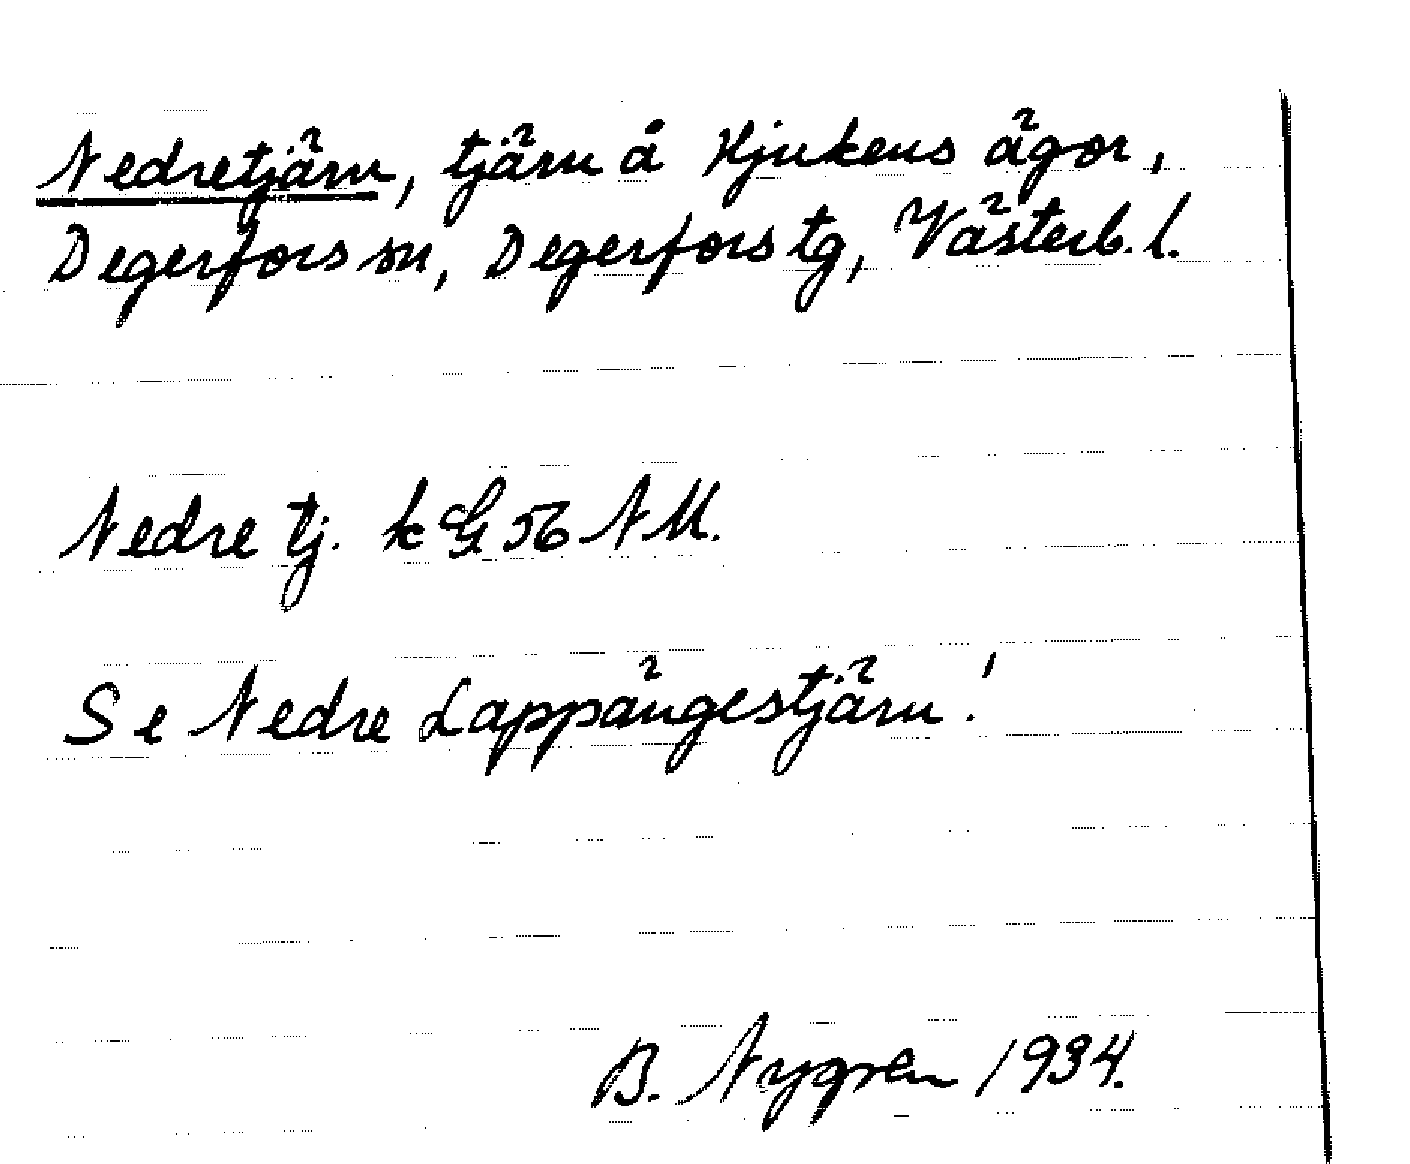 Nedretjärn, tjärn å Hjukens ägor,
Degerfors sn, Degerfors tg, Västerb. l.
Nedre tj. k G 56 NM.
Se Nedre Lappängestjärn!
B. Nygren 1934.